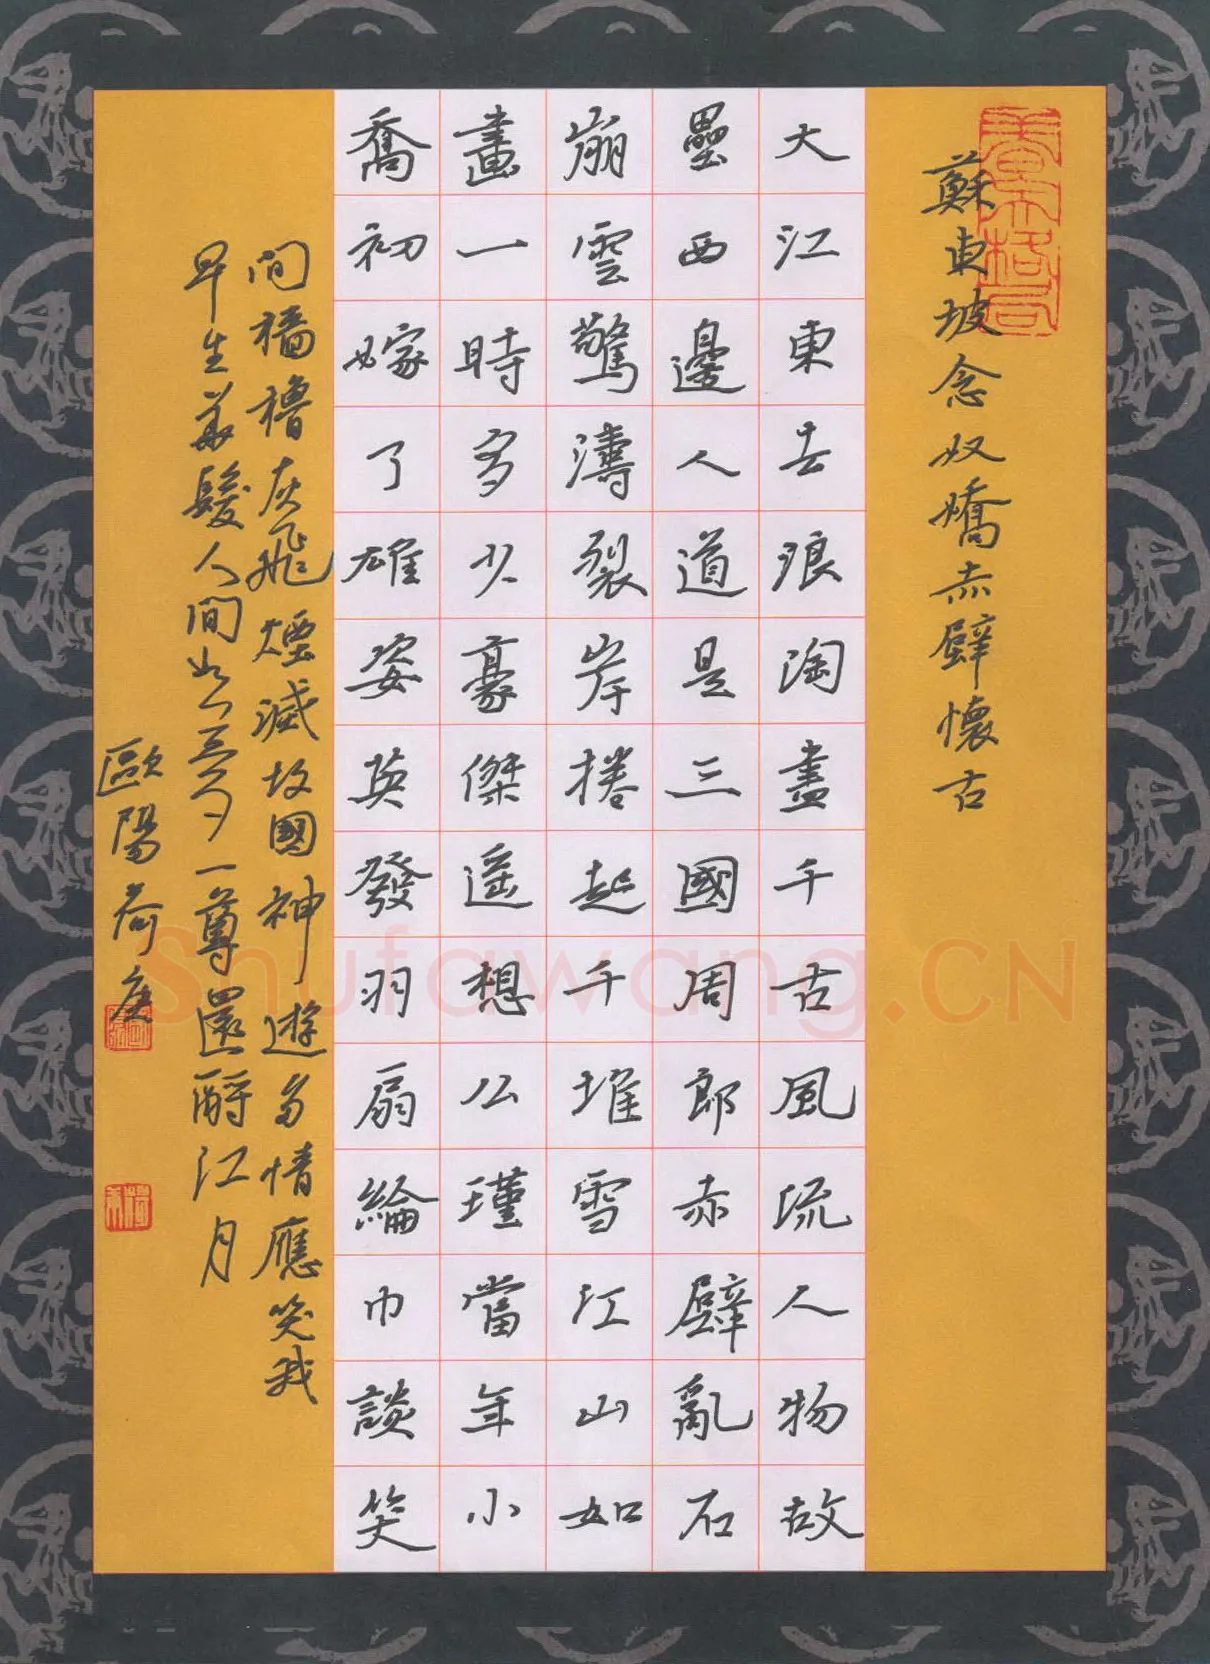 蘇東坡念奴嬌赤壁懷古
大江東去浪淘盡千古風流人物故
壘西邊人道是三國周郎赤壁亂石
崩雲驚濤裂岸捲起千堆雪江山如
畫一時多少豪傑遥想公瑾當年小
喬初嫁了雄姿英發羽扇綸巾談笑
間檣櫓灰飛煙滅故國神遊多情應笑我
早生華髮人間如夢一尊還酹江月
歐陽荷庚
Shufawang.CN